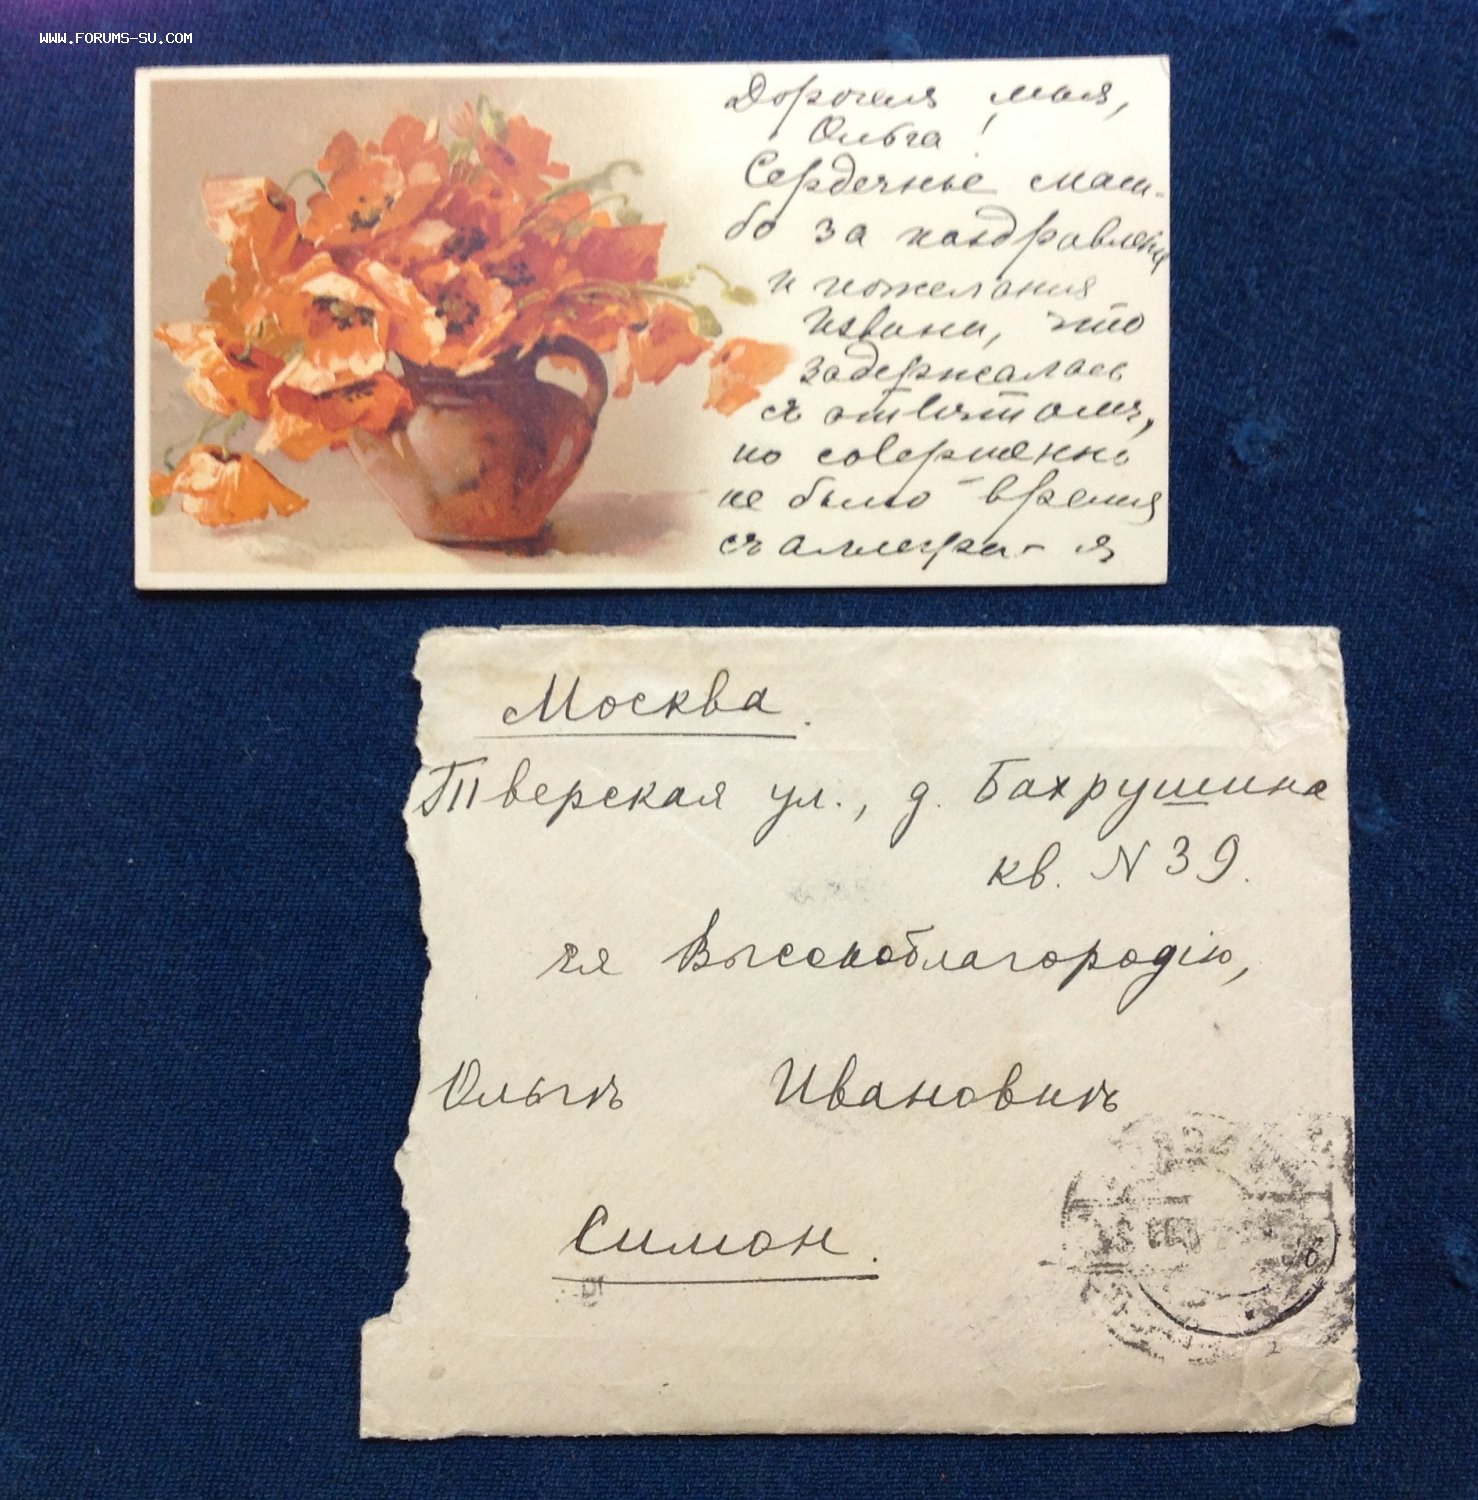 WWW.FORUMS-SU.COM
Дорогая моя,
Ольга!
Сердечное спаси-
бо за поздравленiя
и пожелания
Извини, что
задержалась
съ ответомъ,
но совершенно
не было времени
съ я
Москва.
Тверская ул., д. Бахрушина
кв. N 39.
Ея Высокоблагородію,
Ольгѣ Ивановнѣ
Симон.